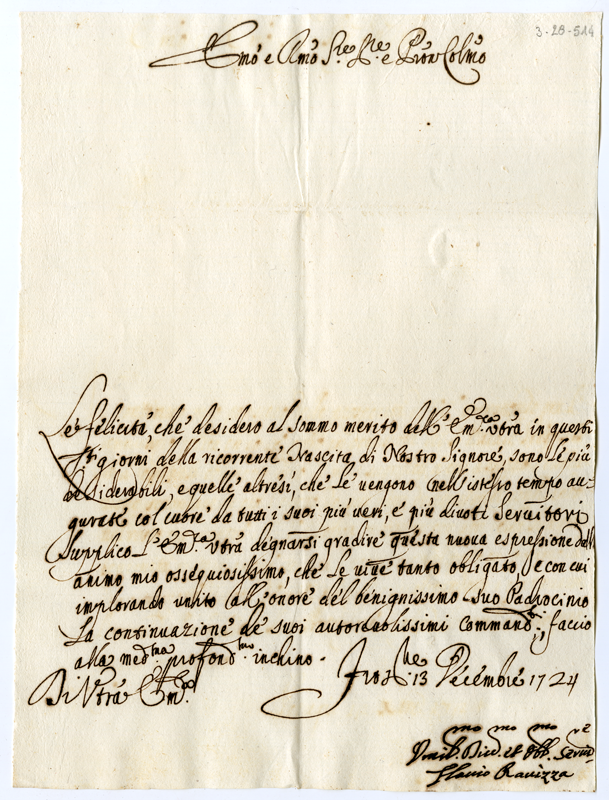 3-28-514
Emo e Rmo Sre Sre e Pron Colmo
Le felicità, che desidero al sommo merito dell' Emza vrã in questi
Sti giorni della ricorrente Nascita di Nostro Signore, sono le più
desiderabili, e quelle altresì, che le vengono nell'istesso tempo au-
gurate col cuore da tutti i suoi più veri, e più divoti Servitori
Supplico l'Emza vrã degnarsi gradire questa nuova espressione dell'
animo mio ossequiosissimo, che le vive tanto obligato, e con cui
implorando unito all'onore del benignissimo suo Padrocinio
la continuazione de suoi autorevolissimi Commandi, faccio
alla medma profondmo inchino.
Di Vrã Emza
13 Decembre 1724
Umil. Div. et Obb. Servre
Flavio Ravizza